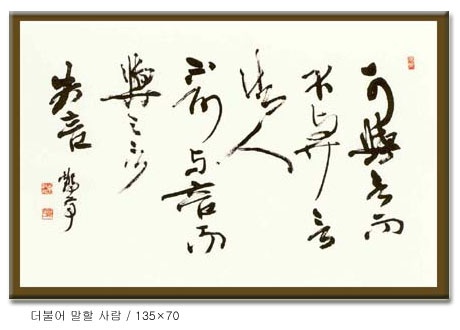 可與言而
不与之言
失人
不可与言而
與之言
失言
더불어 말할 사람 / 135×70